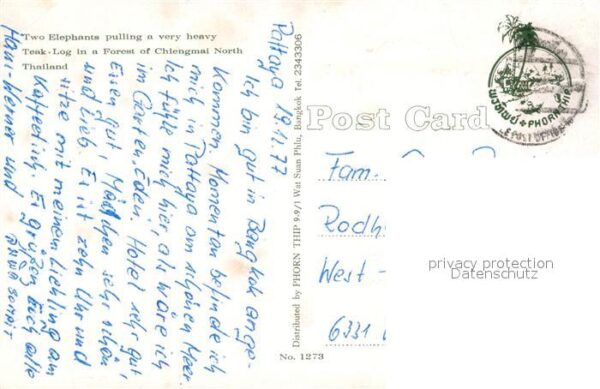 Two Elephants pulling a very heavy
Teak-Log in a Forest of Chiengmai North
Thailand
Pattaya 19.11.77
Ich bin gut in Bangkok ange-
kommen. Momentan befinde ich
mich in Pattaya am schönen Meer
Ich fühle mich hier, als wäre ich
im Garten Eden. Hotel sehr gut,
Essen gut, Mädchen sehr schön
und lieb. Es ist zehn Uhr und
sitze mit meinem Liebling am
Kaffeetisch. Es grüßen Euch alle
Hans-Werner und
Distributed by PHORN THIP 9-9/1 Wat Suan Phlu, Bangkok Tel. 2343306
No. 1273
Post Card
PHORNTHIP
Fam.
Rodh
West -
6331
privacy protection
Datenschutz